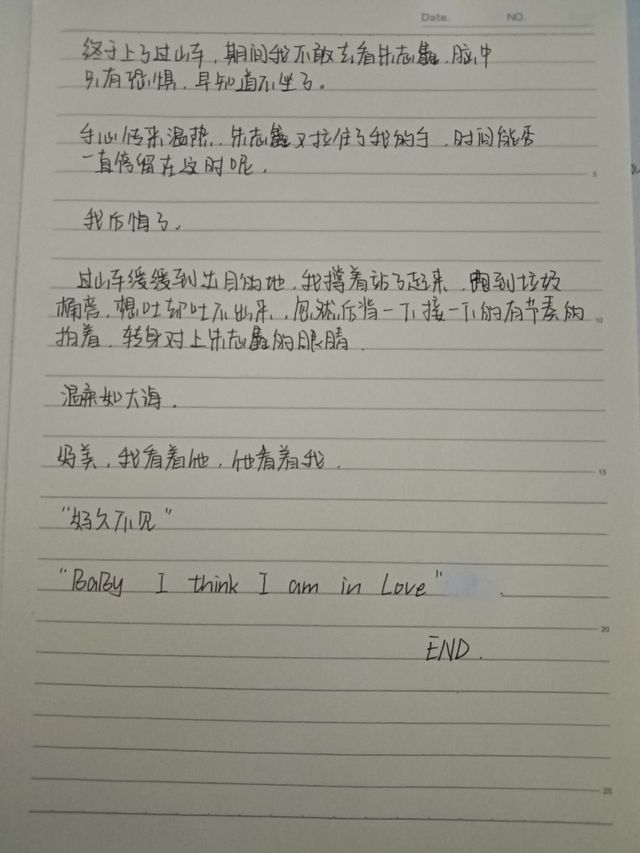 Date. NO.
终于上了过山车，期间我不敢去看朱志鑫，脑中
只有恐惧，早知道不坐了。
手心传来温热，朱志鑫又拉住了我的手，时间能否
一直停留在这时呢，
我后悔了。
过山车缓缓到达目的地，我撑着站了起来，跑到垃圾
桶旁，想吐却吐不出来，忽然后背一下接一下的有节奏的
拍着，转身对上朱志鑫的眼睛
温柔如大海，
好美，我看着他，他看着我，
“好久不见”
“BaBy I think I am in Love”
END.
5
10
15
20
25